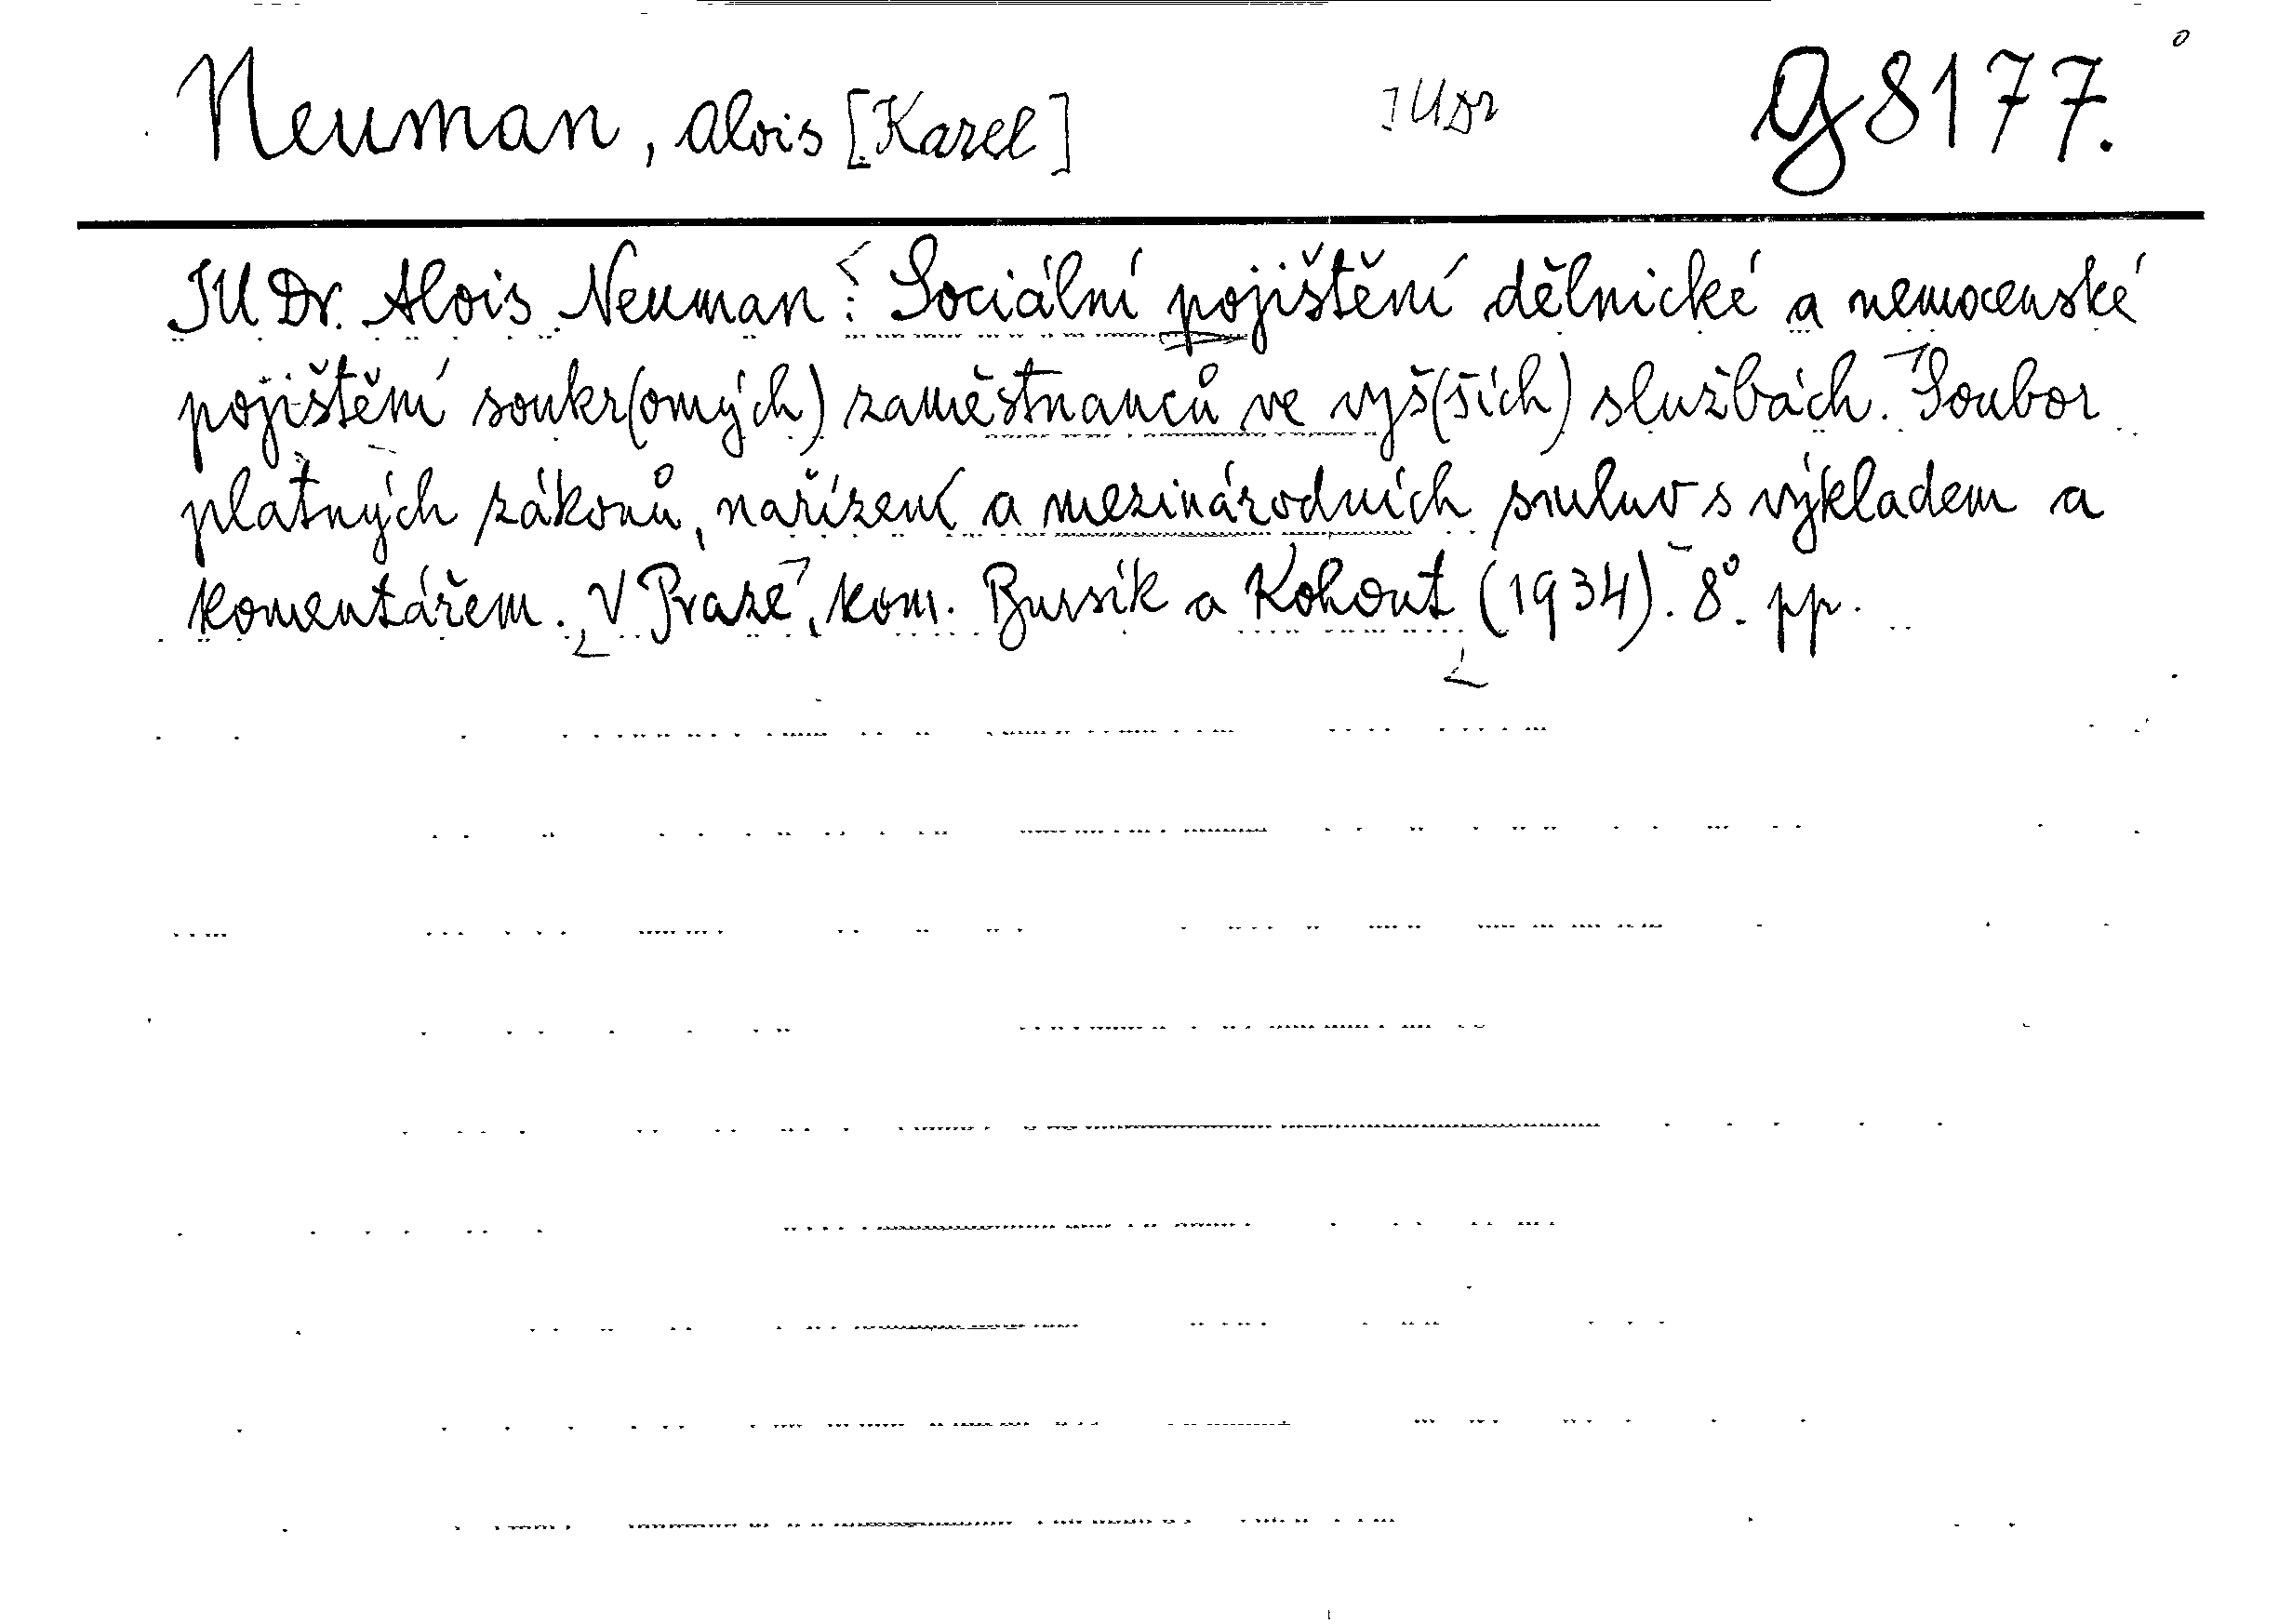 Neuman, Alois [Karel] JUDr g 8177.
JUDr. Alois Neuman: Sociální pojištění dělnické a nemocenské
pojištění soukr(omých) zaměstnanců ve vyš(ších) službách. Soubor
platných zákonů, nařízení a mezinárodních smluv s výkladem a
komentářem. V Praze, kom. Bursík a Kohout (1934). 8°. pp.